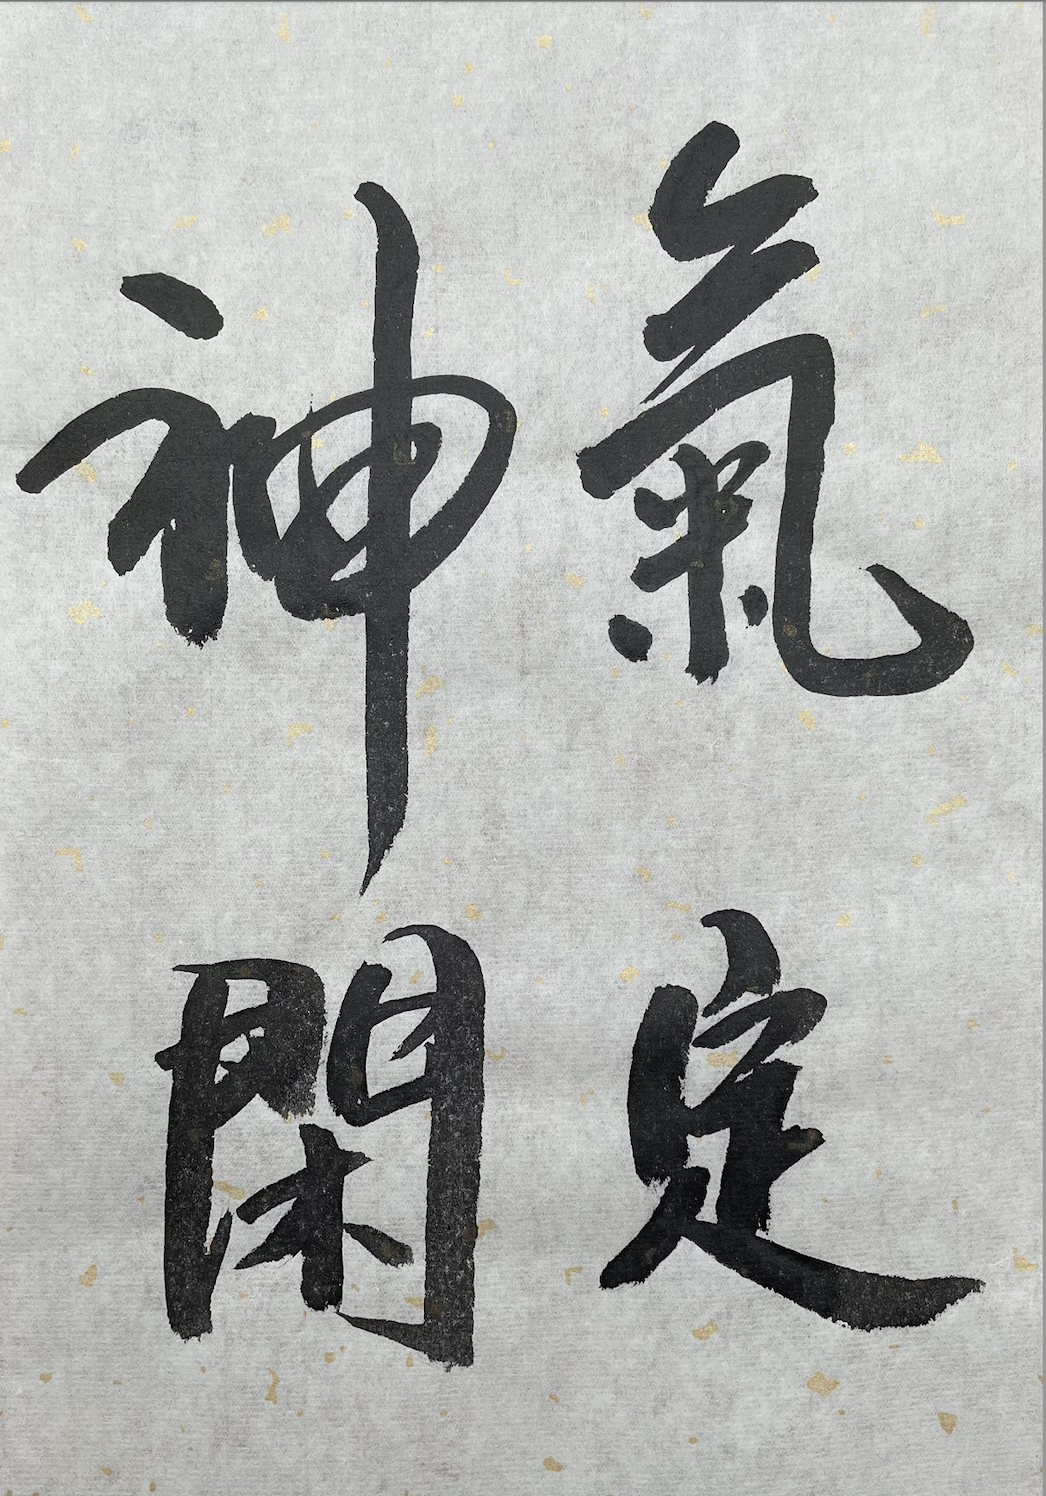 氣定
神閑